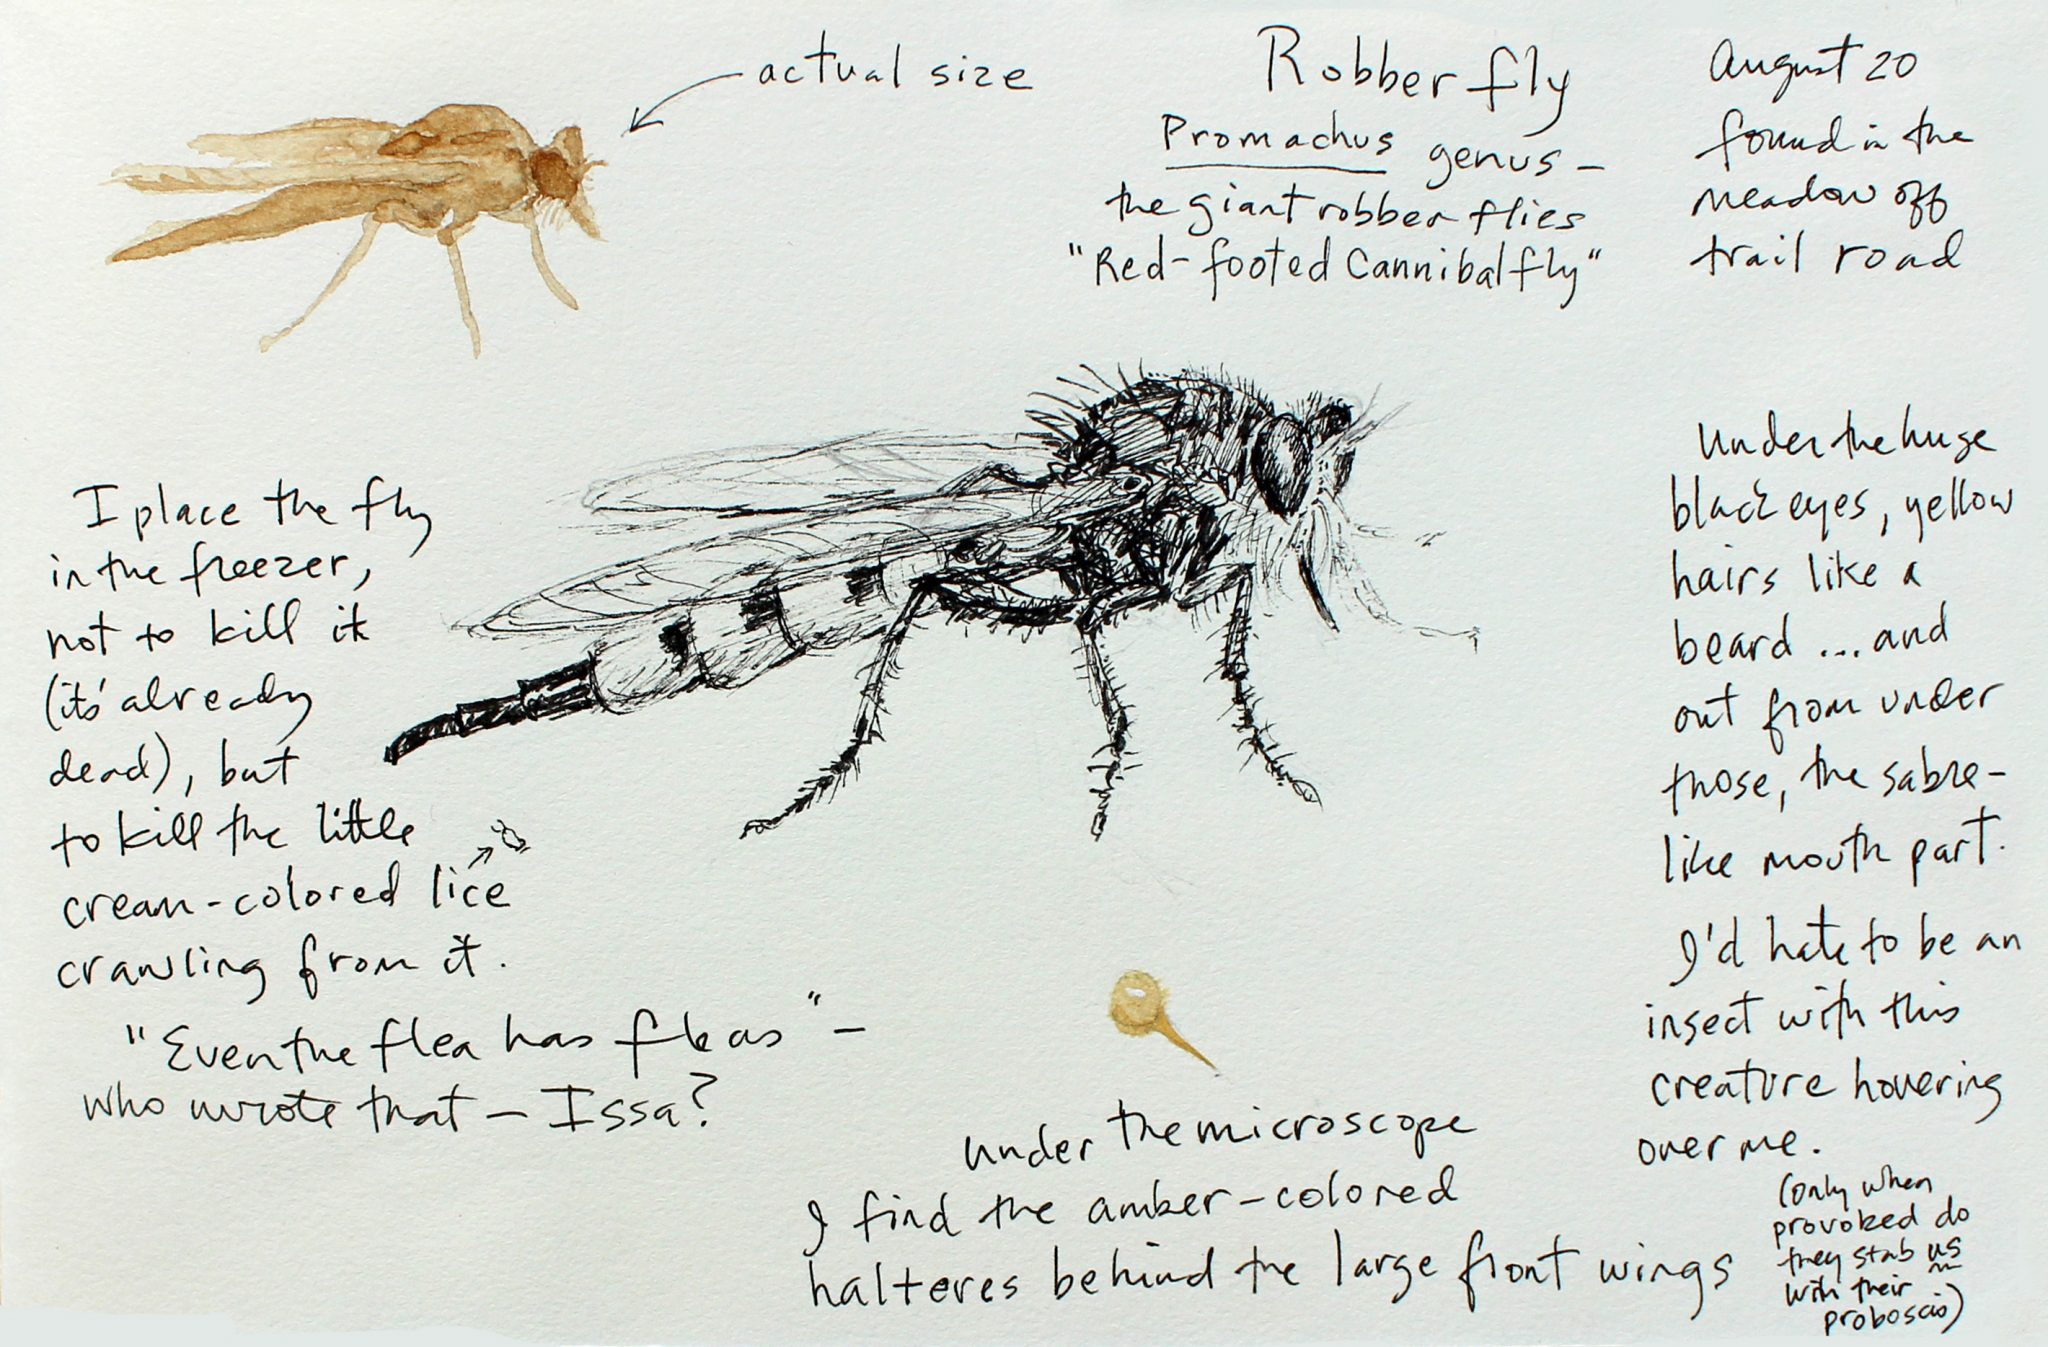 actual size
Robber fly
Promachus genus –
the giant robber flies
"Red-footed Cannibalfly"
August 20
found in the
meadow off
trail road
I place the fly
in the freezer,
not to kill it
(it's already
dead), but
to kill the little
cream-colored lice
crawling from it.
"Even the flea has fleas" –
who wrote that – Issa?
Under the huge
black eyes, yellow
hairs like a
beard ... and
out from under
those, the sabre-
like mouth part.
I'd hate to be an
insect with this
creature hovering
over me.
(only when
provoked do
they stab us
with their
proboscis)
Under the microscope
I find the amber-colored
halteres behind the large front wings